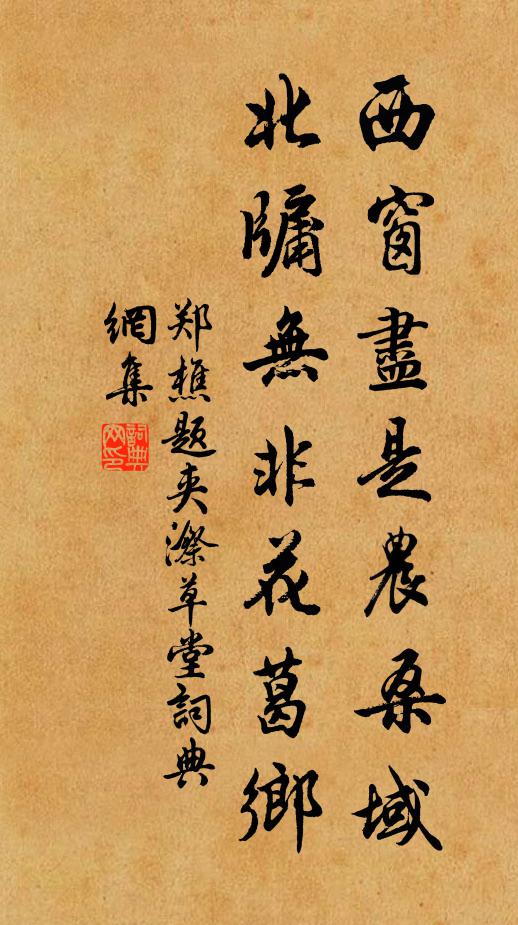 西窗盡是農桑域
北牖無非花葛鄉
郑樵题夹漈草堂詞典
網集
詞典
网印